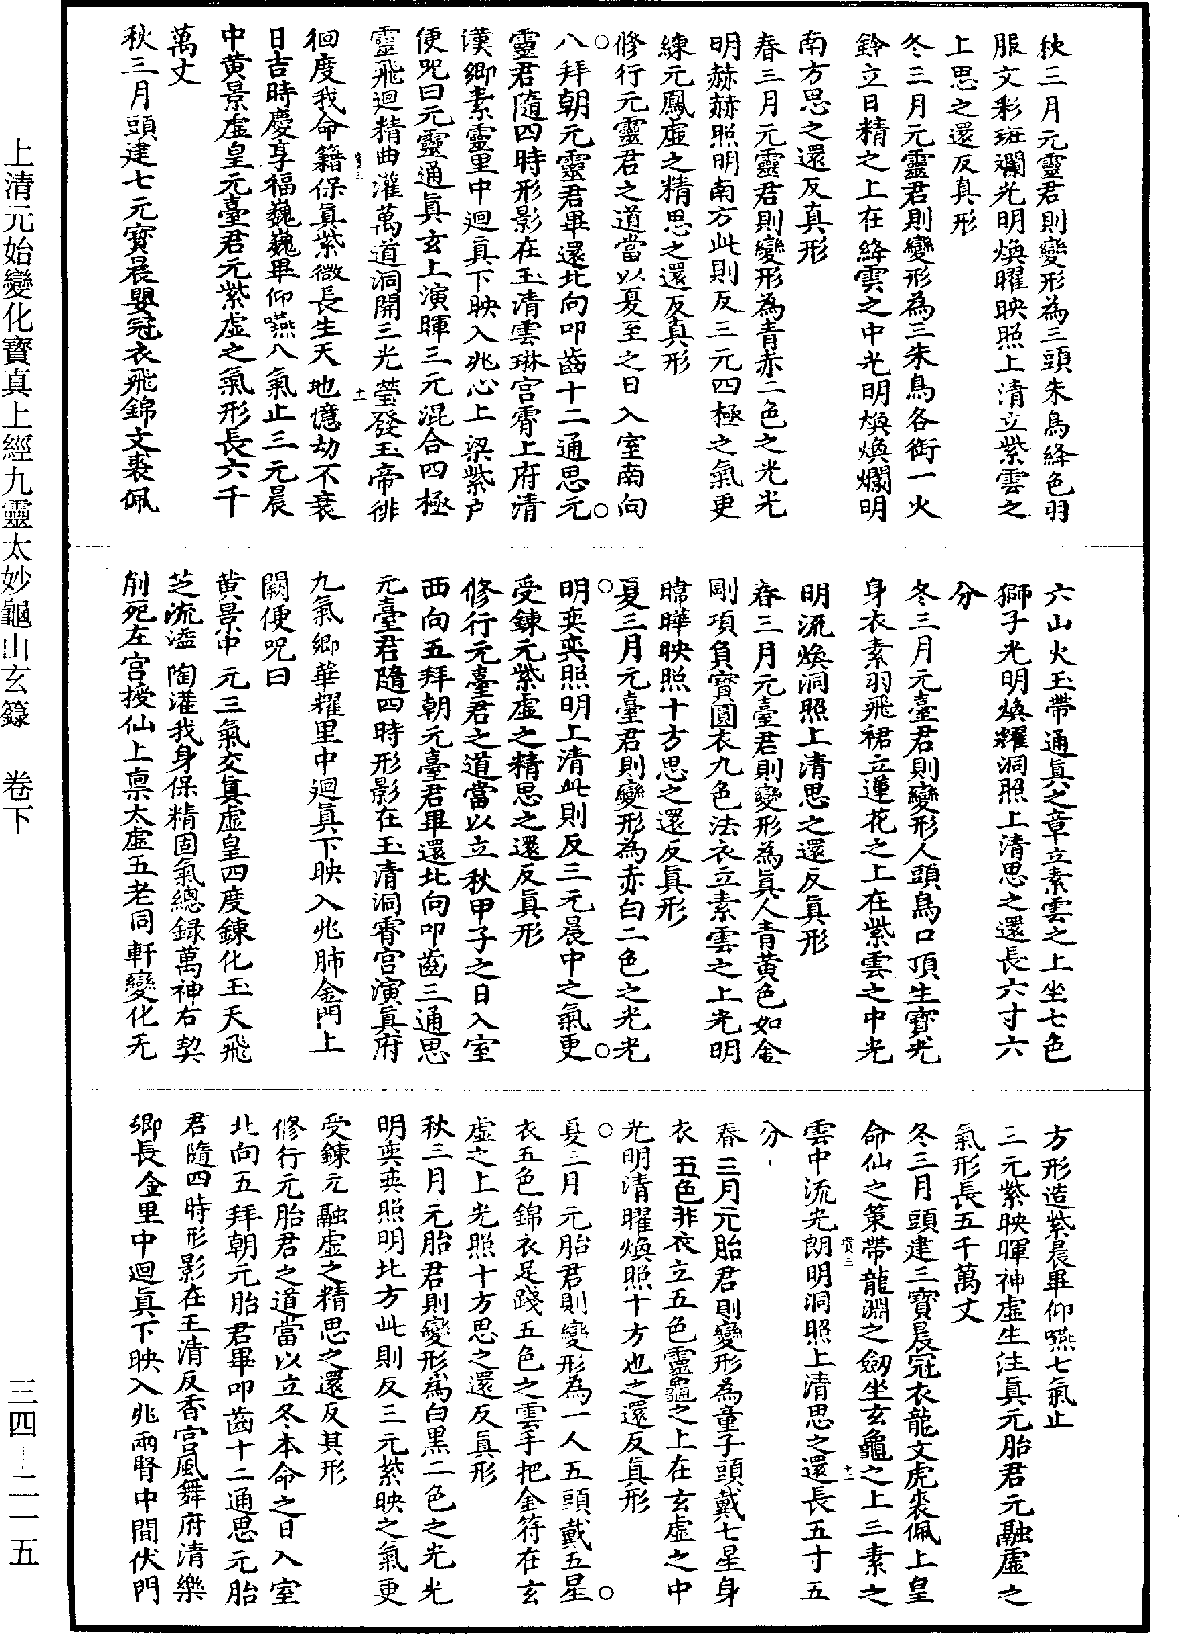 秋三月元靈君則變形為三頭朱鳥絳色羽
服文彩斑斕光明煥曜映照上清立紫雲之
上思之還反真形
冬三月元靈君則變形為三朱鳥各銜一火
鈴立日精之上在絳雲之中光明煥煥爛明
南方思之還反真形
春三月元靈君則變形為青赤二色之光光
明赫赫照明南方此則反三元四極之氣更
練元鳳虛之精思之還反真形
修行元靈君之道當以夏至之日入室南向
八拜朝元靈君畢還北向叩齒十二通思元
靈君隨四時形影在玉清雲琳宮霄上府清
漢鄉素靈里中迴真下映入兆心上梁紫戶
便咒曰元靈通真玄上演暉三元混合四極
靈飛迴精曲灌萬道洞開三光瑩發玉帝徘
徊度我命籍保真紫微長生天地億劫不衰
日吉時慶享福巍巍畢仰嚥八氣止三元晨
中黃景虛皇元臺君元紫虛之氣形長六千
萬丈
秋三月頭建七元寶晨嬰冠衣飛錦文裘佩
六山火玉帶通真之章立素雲之上坐七色
獅子光明煥耀洞照上清思之還長六寸六
分
冬三月元臺君則變形人頭鳥口頂生寶光
身衣素羽飛裙立蓮花之上在紫雲之中光
明流煥洞照上清思之還反真形
春三月元臺君則變形為真人青黃色如金
剛項負寶圓衣九色法衣立素雲之上光明
暐曄映照十方思之還反真形
夏三月元臺君則變形為赤白二色之光光
明奕奕照明上清此則反三元晨中之氣更
受鍊元紫虛之精思之還反真形
修行元臺君之道當以立秋甲子之日入室
西向五拜朝元臺君畢還北向叩齒三通思
元臺君隨四時形影在玉清洞霄宮演真府
九氣鄉華耀里中迴真下映入兆肺金門上
闕便咒曰
黃景中元三氣交真虛皇四度鍊化玉天飛
芝流溢陶灌我身保精固氣總錄萬神右契
削死左宮授仙上稟太虛五老同軒變化无
方形造紫晨畢仰嚥七氣止
三元紫映暉神虛生注真元胎君元融虛之
氣形長五千萬丈
冬三月頭建三寶晨冠衣龍文虎裘佩上皇
命仙之策帶龍淵之劒坐玄龜之上三素之
雲中流光朗明洞照上清思之還長五寸五
分
春三月元胎君則變形為童子頭戴七星身
衣五色非衣立五色靈龜之上在玄虛之中
光明清曜煥照十方也之還反真形
夏三月元胎君則變形為一人五頭戴五星
衣五色錦衣足踐五色之雲手把金符在玄
虛之上光照十方思之還反真形
秋三月元胎君則變形為白黑二色之光光
明奕奕照明北方此則反三元紫映之氣更
受鍊元融虛之精思之還反其形
修行元胎君之道當以立冬本命之日入室
北向五拜朝元胎君畢叩齒十二通思元胎
君隨四時形影在玉清反香宮風舞府清樂
鄉長金里中迴真下映入兆兩腎中間伏門
上清元始變化寶真上經九靈太妙龜山玄籙 卷下
三四—二一五